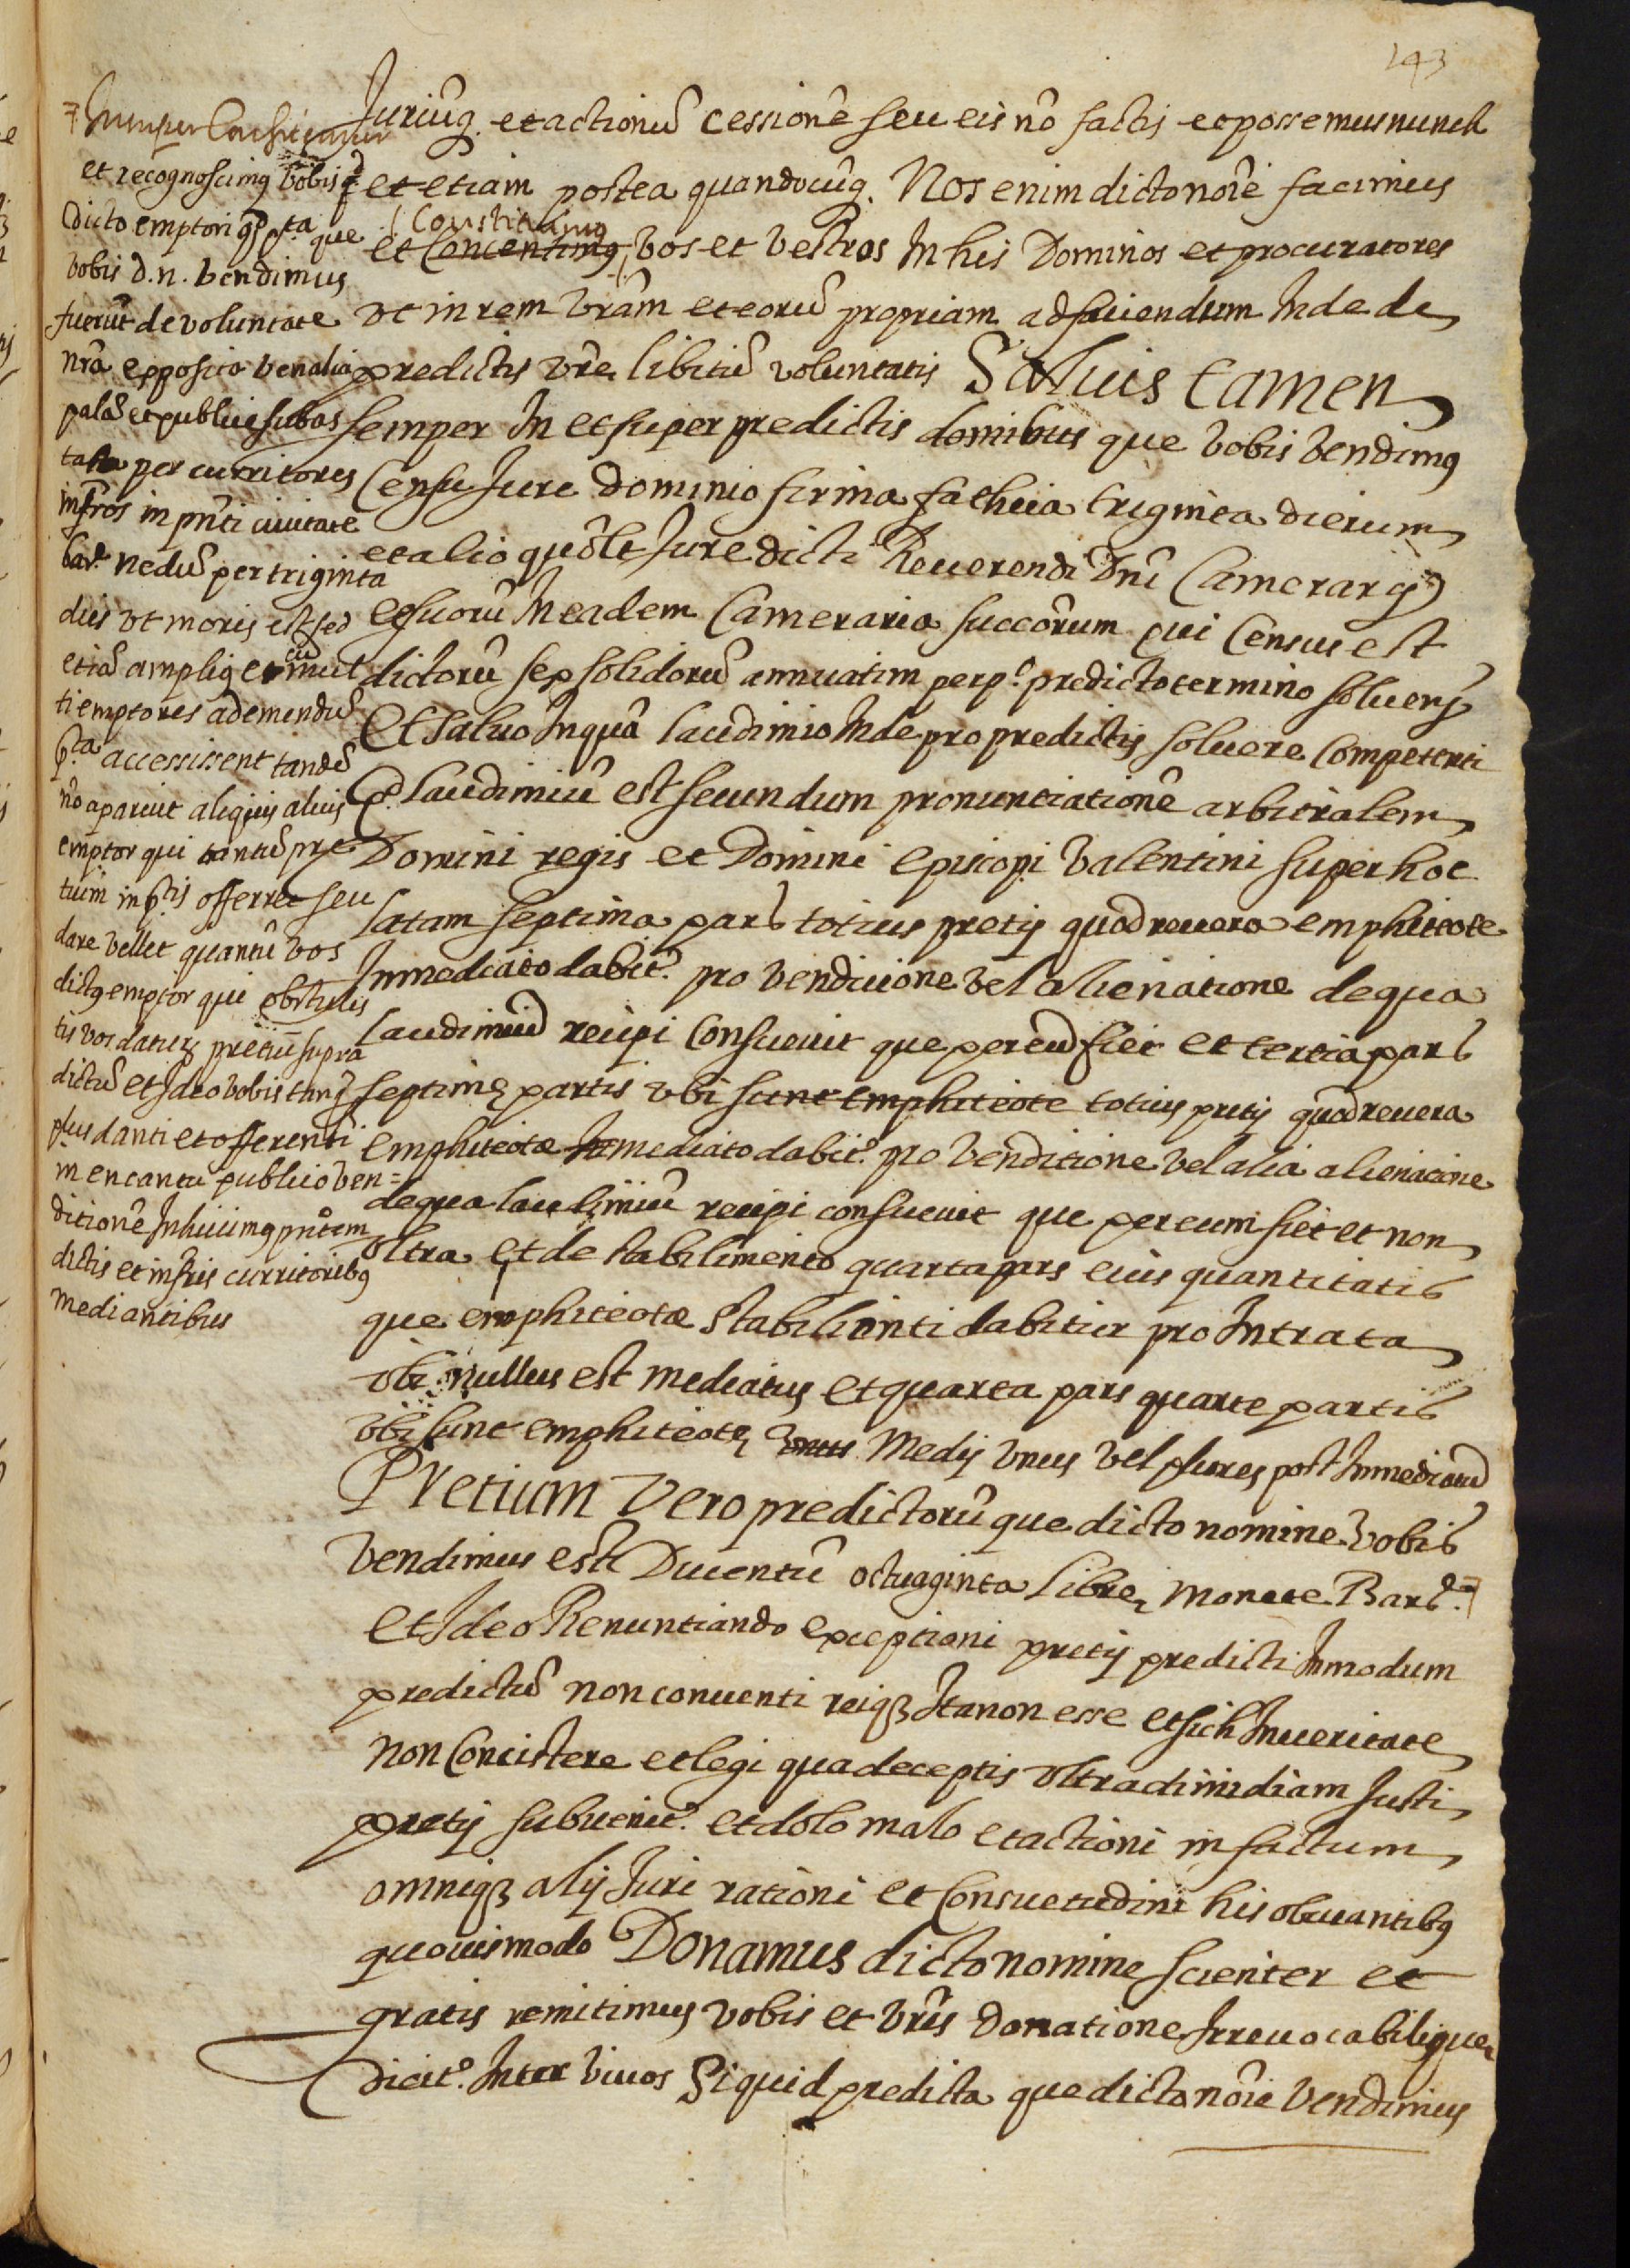 143
Juriũq. et actionũ cessionẽ seu eis nõ factis et possemus nunch
et etiam postea quandocũq. Nos enim dicto noĩe facimus
et Concentimꝰ Constituimꝰ vos et vestros In his Dominos et procuratores
ut in rem vr̃am et eorũ propriam ad faciendum Inde de
predictis vr̃e libitũ voluntatis Saluis tamen
semper In et super predictis domibus que vobis vendimꝰ
Censu Jure dominio firma fatheia triginta dierum
et alio quõlt Jure dicti Reuerendi Dnĩ Camerarij
et suorũ In eadem Cameraria succõrum qui Census est
dictorũ sex solidorũ annuatim perpº predicto termino soluens
Et saluo Inquã laudimio Inde pro predictis soluere Competenti
Qd laudimiũ est secundum pronuntiationẽ arbitralem
Domini regis et Domini episcopi Valentini super hoc
latam septima pars totius pretij quod reuera emphiteote
Inmediato dabitº pro vendicione vel alienatione de qua
laudimiũ recipi Consueuit que per eũ fiet et tertia pars
septimę partis vbi sunt emphiteote totius pretij quod reuera
emphiteotæ Inmediato dabitº pro venditione vel alia alienatione
de qua laudimiũ recipi consueuit que per eum fiet et non
vltra et de stabilimento quarta pars eius quantitatis
que emphiteotæ stabilienti dabitur pro Intrata
vbi nullus est mediatus et quarta pars quarte partis
vbi sunt emphiteotę Medij vnus vel plures post Inmediatũ
Pretium vero predictorũ que dicto nomine vobis
vendimus est Ducentũ octuaginta librę monete Barᵉ.
Et Ideo Renuntiando exceptioni pretij predicti In modum
predictũ non conuenti reiqꝫ Ita non esse et sich In veritate
non Concistere et legi qua deceptis vltra dimidiam Justi
pretij subuenitº et dolo malo et actioni in factum
omniqꝫ alij Juri rationi et Consuetudini his obuiantibꝰ
quouismodo Donamus dicto nomine scienter et
gratis remitimus vobis et vr̃is donatione Irreuocabili que
dicitº Inter viuos Si quid predicta que dicto noĩe vendimus
Insuper Confitemur
et recognoscimꝰ vobis
dicto emptori qd pᵗᵃ que
vobis d. n. vendimus
fuerũt de voluntate
nr̃a exposita venalia
palã et publice subas
tata per curritores
infr̃os in pñti ciuitate
Barᵉ nedũ per triginta
dies vt moris est sed
etiã ampliꝰ et cũ mul
ti emptores ad emendũ
pᵗᵃ accessissent tandẽ
nõ aparuit aliquis alius
emptor qui tantũ pre
tium in pᵗⁱˢ offerret seu
dare vellet quantũ vos
dictꝰ emptor qui obtulis
tis vos daturꝰ pretiũ supra
dictũ et Ideo vobis tanq̃
plus danti et offerenti
in encantu publico ven=
ditionẽ In huiusmodi pñtem
dictis et infr̃is curritoribꝰ
mediantibus